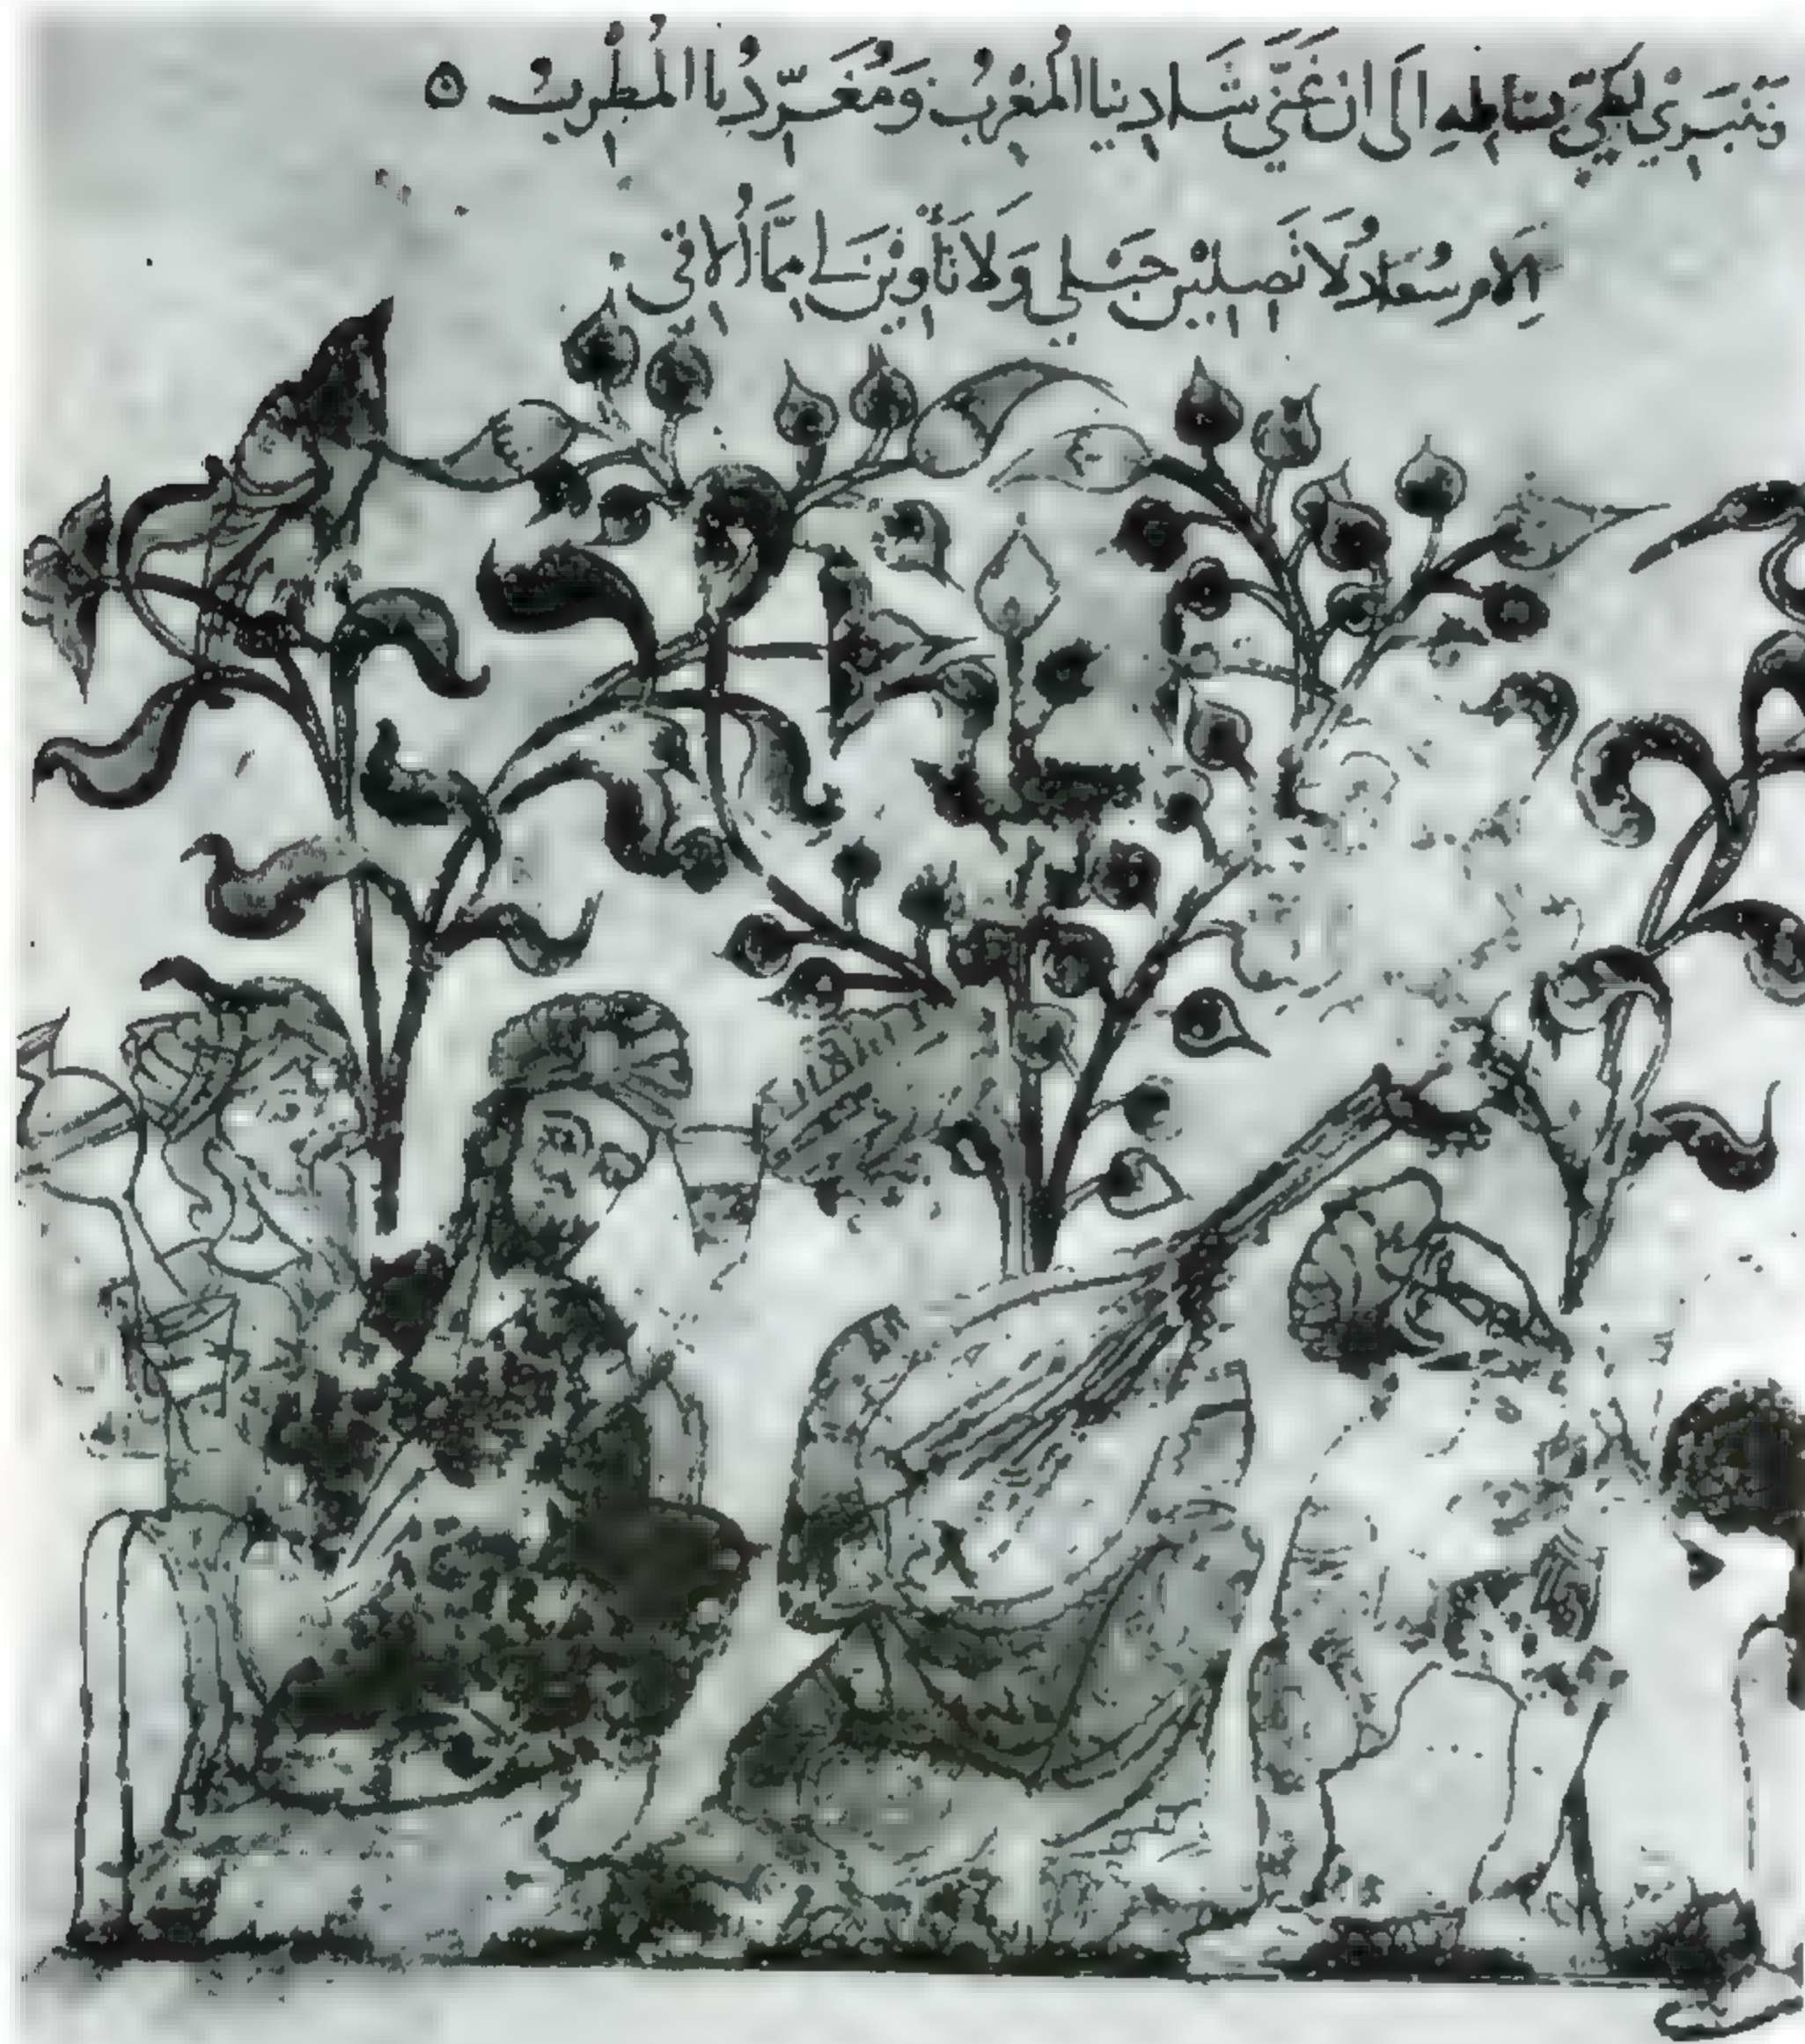 وَنَنْبَرِيْ لِطَيِّ بساطِهِ اِلَى ان غَنَّى شَادينا المُغْرِبُ وَمُغَرِّدُنا المُطْرِبُ ه
اِلَامَ سُعَادُ لَا تَصِلِيْن حَبْلِي وَلَا تَأْوِيْنَ لِي مِمَّا أُلَاقِي